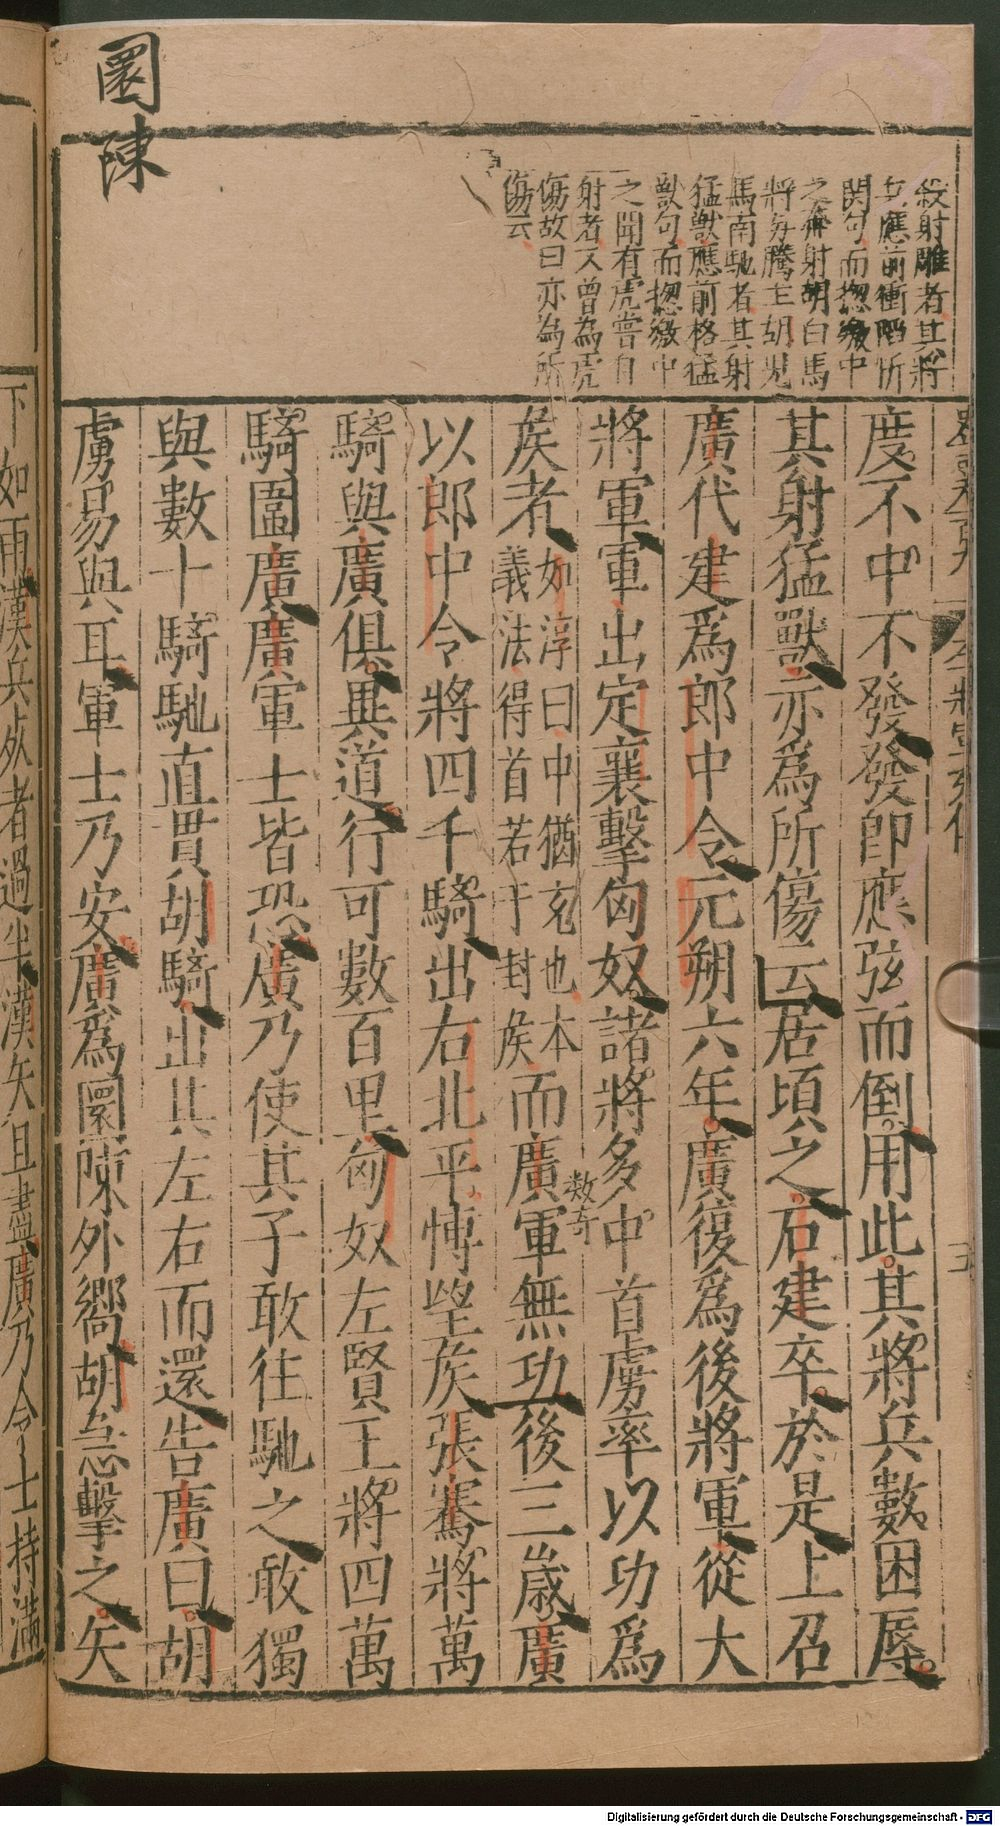 圜陳
殺射雕者其將
兵應前衝陷折
関句而揔繳中
之齊射胡白馬
將每騰圡胡児
馬南馳者其射
猛獸應前格猛
獸句而揔繳中
之聞有虎嘗自
射者又曾為虎
傷故曰亦為所
傷云
度不中不發發即應弦而倒用此其將兵數困辱
其射猛獸亦爲所傷云居頃之石建卒於是上召
廣代建爲郎中令元朔六年廣復爲後將軍從大
將軍軍出定襄擊匈奴諸將多中首虜率以功爲
矦者如淳曰中猶充也本
義法得首若干封矦而廣軍無功後三歲廣
数奇
以郎中令將四千騎出右北平愽望矦張騫將萬
騎與廣俱異道行可數百里匈奴左賢王將四萬
騎圍廣廣軍士皆恐廣乃使其子敢往馳之敢獨
與數十騎馳直貫胡騎出其左右而還告廣曰胡
虜易與耳軍士乃安廣爲圜陳外嚮胡急擊之矢
下如雨漢兵死者過半漢矢且盡廣乃令士持滿
Digitalisierung gefördert durch die Deutsche Forschungsgemeinschaft - DFG